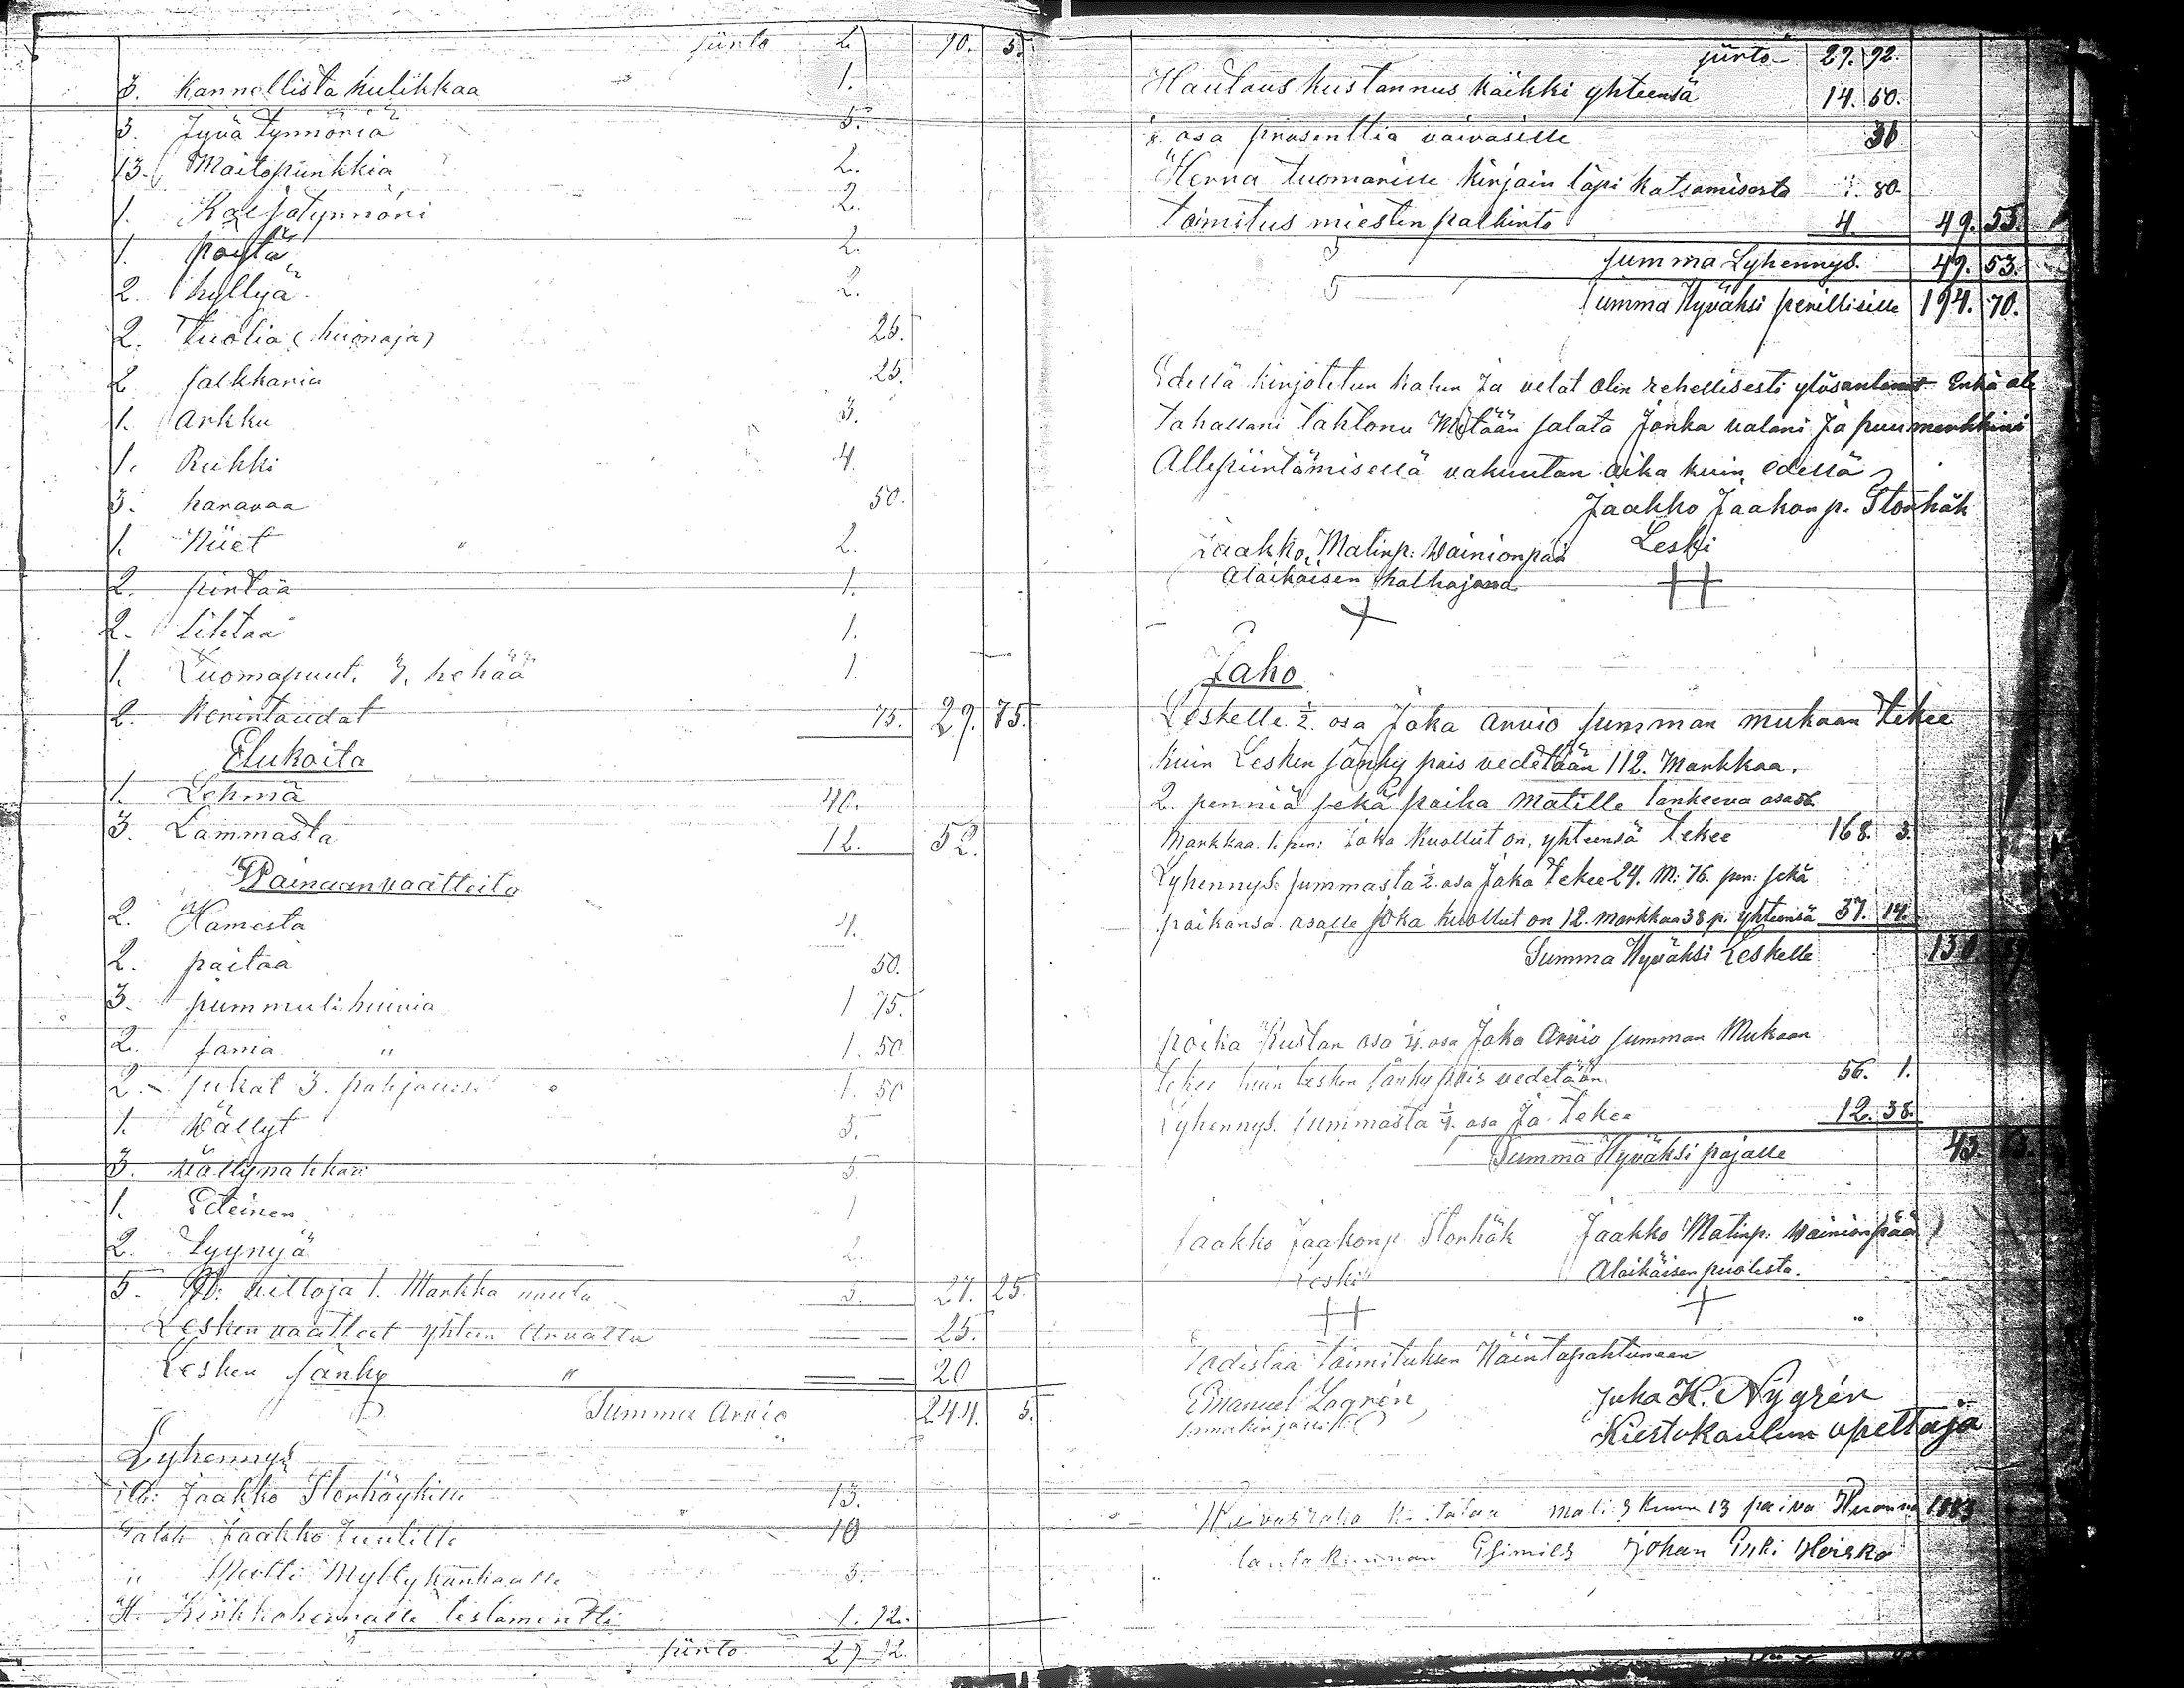 siirto 2. 90. 5.
3. Kannellista kulikkaa 1.
3. Jyvä tynnöriä 5.
13. Maitopunkkia 2.
1. Kaljatynnöri 2.
1. pöytä 2.
2. hyllyä 2.
2. Tuolia (huonoja) 25.
2 jakkaria 25.
1. Arkku 3.
1. Rukki 4.
3. haravaa 50.
1. Niiet 2.
2. pirtaa 1.
2. lihtaa 1.
1. Luomapuut. 3. kehää 1.
2. Kerintaudat 75. 29. 75.
Elukoita
1. Lehmä 40.
3. Lammasta 12. 52.
Wainaan vaatteita
2. Hamesta 4.
2. paitaa 50.
3. pummuli huivia 1 75.
2. " 1. 50
2. sukat 3. 1. 50
1. Wällyt 5.
3. vällynahkaa 5
1. Eteinen 1
2. Tyynyä 2.
5. villoja 1. Markka 5. 27. 25.
Lesken vaatteet yhteen Arvattu 25.
Lesken sänky " 20
Summa Arvio 244. 5.
Lyhennys
Jaakko Storhöykille 13.
Jaakko Juutille 10
" Matti Myllykankaalle 3.
H. Kirkkoherralle testamentti 1. 92.
siirto 27 92.
siirto 27. 92.
Hautaus kustannus kaikki yhteensä 14. 50.
⅛. osa prosenttia vaivasille 31
Herra tuomarille kirjain läpi katsomisesta 1. 80
toimitus miesten palkinto 4. 49. 53.
Summa Lyhennys. 49. 53.
Summa Hyväksi perillisille 194. 70.
Edellä kirjotetun kalun Ja velat olen rehellisesti ylösantanut Enkä ole
tahallani tahtonu Mitään salata Jonka valani Ja puumerkkini
Allepiirtämisellä vakuutan aika kuin edellä
Jaakko Jaakonp. Storhök
Jaakko Matinp: Wainionpää Leski
Alaikäisen halhojana
Jako
Leskelle ½. osa Joka Arvio summan mukaan tekee
kuin Lesken sänky pois vedetään 112. Markkaa.
2. penniä sekä poika Matille lankeeva osa 56.
Markkaa. 1. pen: Joka kuollut on, yhteensä tekee 168. 3.
Lyhennys summasta ½. osa Joka tekee 24. M: 76. pen: sekä
poikansa osalle joka kuollut on 12. markkaa 38 p. yhteensä 37. 14.
Summa Hyväksi Leskelle 130
poika Kustan osa ¼. osa Joka Arvio summan Mukaan
tekee kuin lesken sänky pois vedetään 56. 1.
Lyhennys. summasta ¼. osa Jo tekee 12. 38.
Summa Hyväksi pojalle 43.
Jaakko Jaakonp Storhök Jaakko Matinp: Wainionpää
Leski Alaikäisen puolesta.
Todistaa toimituksen Näintapahtuneen
Emanuel Lagrén, Juha H. Nygrén
Kiertokoulun opettaja
Waivasraho 13 päivä 1883
lautakunnan Esimies Johan